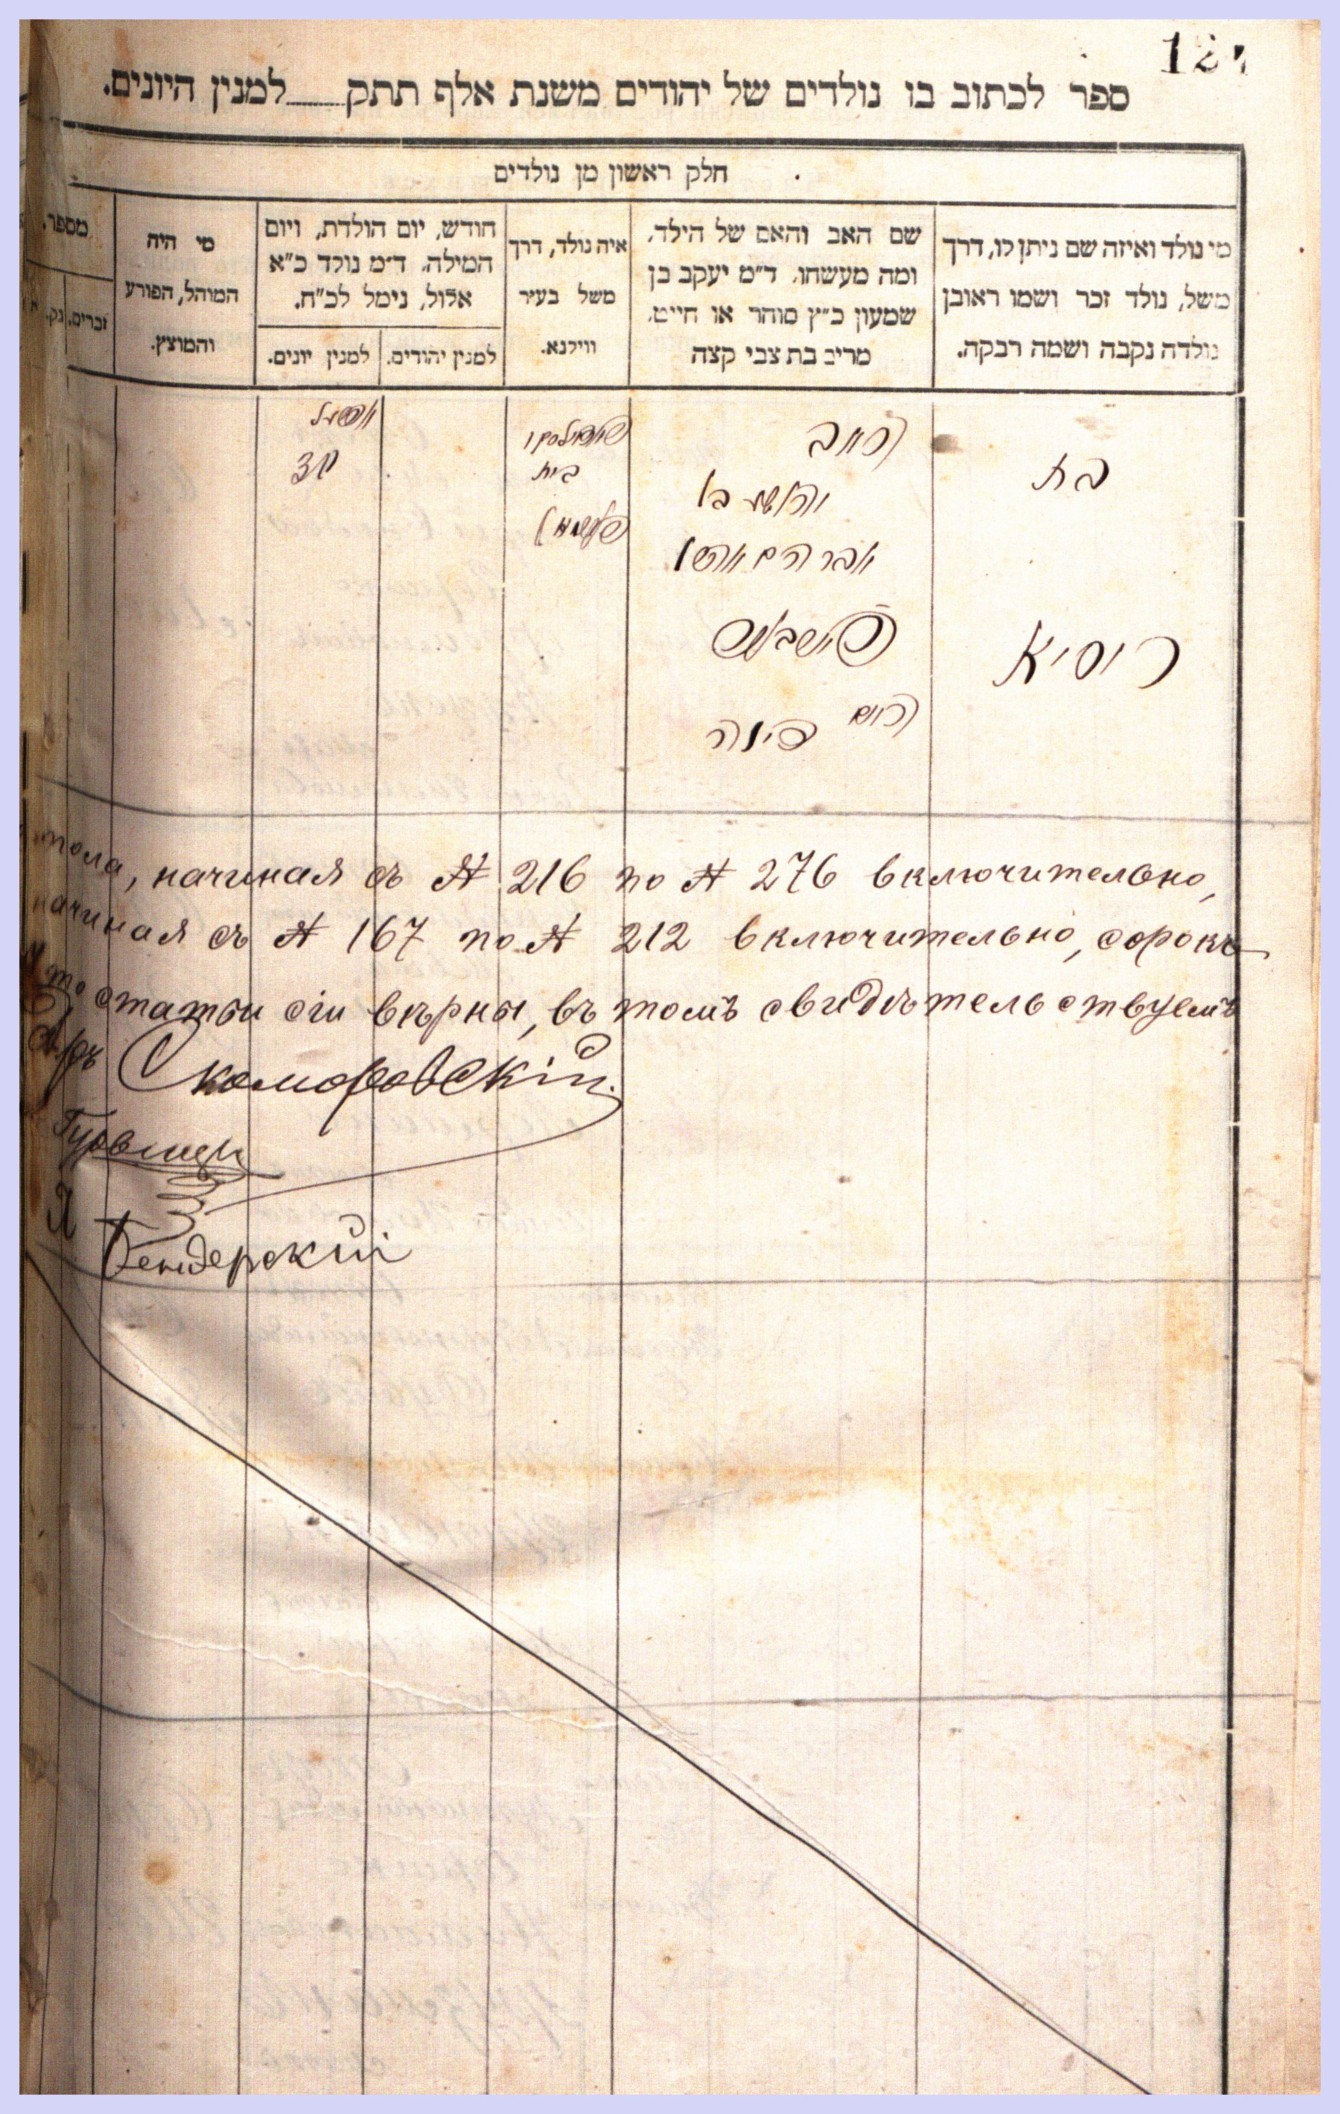 ספר לכתוב בו נולדים של יהודים משנת אלף תתק___למנין היונים.
חלק ראשון מן נולדים
מי נולד ואיזה שם ניתן לו, דרך
משל, נולד זכר ושמו ראובן
נולדה נקבה ושמה רבקה.
שם האב והאם של הילד,
ומה מעשהו, ד״מ יעקב בן
שמעון כ״ץ סוחר או חייט,
מרים בת צבי קצה
איה נולד, דרך
משל בעיר
ווילנא.
חודש, יום הולדת, ויום
המילה, ד״מ נולד כ״א
אלול, נימל לכ״ח.
למנין יהודים.
למנין יונים.
מי היה
המוהל, הפורע
והמוצץ.
מספר.
זכרים.
נק.
בת
רוסיא
האב
אברהם
האם פינה
בית
пола, начиная съ № 216 по № 276 включительно,
начиная съ № 167 по № 212 включительно, сорокъ
что статьи сіи вѣрны, въ томъ свидѣтельствуемъ
Скоморовскій
Гурвицъ
Я Бендерскій